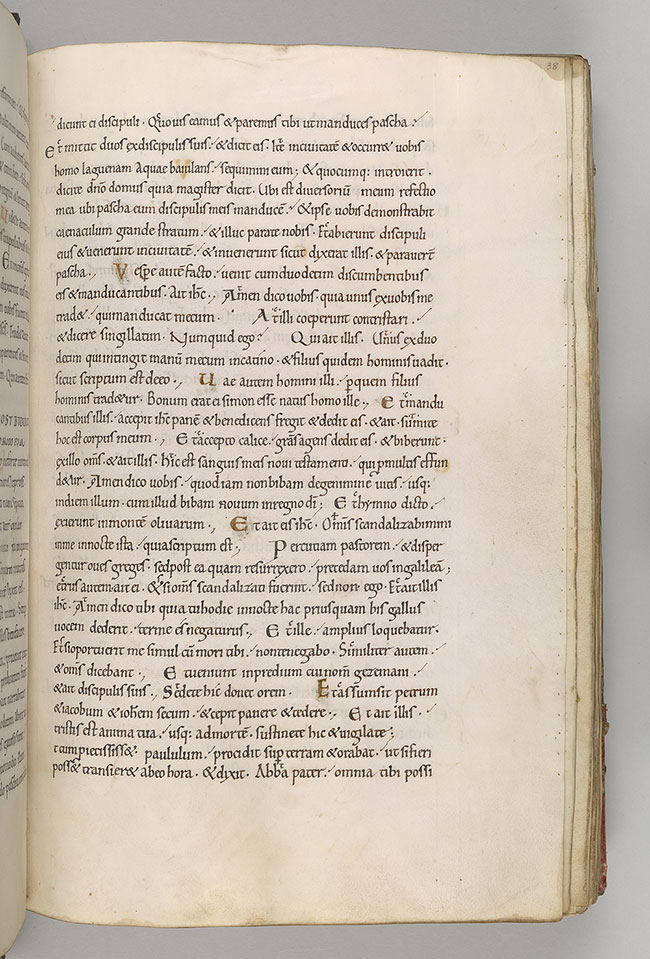 38
dicunt ei discipuli. Quo uis eamus & paremus tibi ut manduces pascha;
Et mittit duos ex discipulis suis. & dicit eis. Ite in ciuitatē & occurr& uobis
homo laguenam aquae baiulans. sequimini eum; & quocumq; introierit.
dicite dn̄o domus quia magister dicit. Ubi est diuersoriū meum refectio
mea ubi pascha cum discipulis meis manducē. & ipse uobis demonstrabit
caenaculum grande stratum. & illuc parate nobis. Et abierunt discipuli
eius & uenerunt in ciuitatē. & inuenerunt sicut dixerat illis. & parauer̄t
pascha., Vespe autē facto. uenit cum duodecim discumbentibus
eis & manducantibus. Ait ih̄c., Amen dico uobis. quia unus ex uobis me
trad&. qui manducat mecum. At illi coeperunt contristari.
& dicere singillatim. Numquid ego. Qui ait illis. Unus ex duo
decim qui intingit manū mecum in catino. & filius quidem hominis uadit.
sicut scriptum est de eo., Uae autem homini illi. p quem filius
hominis trad&ur. Bonum erat ei si non esse natus homo ille., Et mandu
cantibus illis. accepit ih̄c panē & benedicens fregit & dedit eis. & ait. sumite
hoc est corpus meum., Et accepto calice. grās agens dedit eis. & biberunt.
ex illo om̄s. & ait illis. Hic est sanguis meus noui testamenti. qui p multis effun
d&ur. Amen dico uobis. quod iam non bibam de genimine uitis. usq;
in diem illum. cum illud bibam nouum in regno dī; Et hymno dicto.
exierunt in montē oliuarum., Et ait eis ih̄c. Om̄s scandalizabimini
in me in nocte ista. quia scriptum est., Percutiam pastorem. & disper
gentur oues gregis. sed post ea quam resurrexero. precedam uos in galileā;
Petrus autem ait ei. & si om̄s scandalizati fuerint. sed non ego. Et ait illi
ih̄c. Amen dico tibi quia tu hodie in nocte hac priusquam bis gallus
uocem dederit. ter me es negaturus., Et ille. amplius loquebatur.
Et si oportuerit me simul cum mori tibi. non te negabo. Similiter autem.
& om̄s dicebant., Et ueniunt in predium cui nom̄ gezemani.
& ait discipulis suis., Sedete hic donec orem. Et assumsit petrum
& iacobum & ioh̄em secum. & cepit pauere & tedere., Et ait illis.
tristis est anima tua. usq; ad mortē. sustinete hic & uigilate;
& cum paululum. procidit sup terram & orabat. ut si fieri
poss& transier& ab eo hora. & dixit. Abba pater. omnia tibi possi